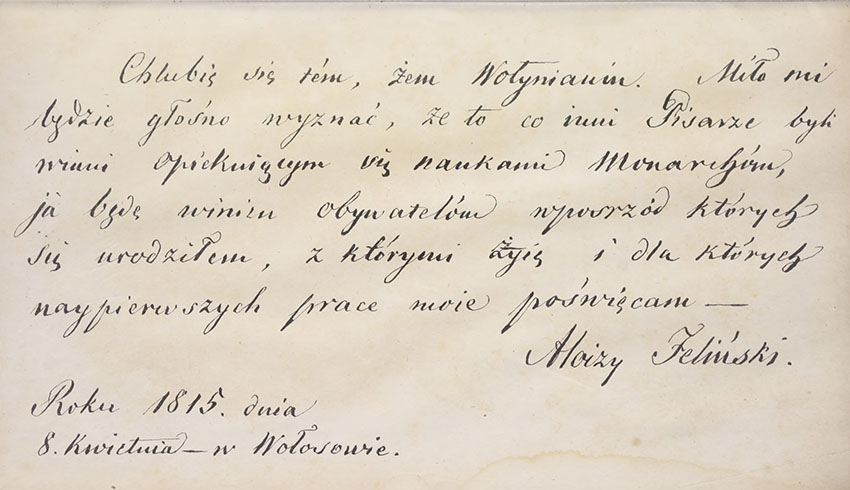 Chlubię się tém, żem Wołynianin. Miło mi
będzie głośno wyznać, że to co inni Pisarze byli
winni opiekuiącym się naukami Monarchóm,
ja będę winien obywatelóm wposrzód których
się urodziłem, z którymi żyię i dla których
naypierwszych prace moie poświęcam —
Aloizy Feliński.
Roku 1815. dnia
8. Kwietnia — w Wołosowie.